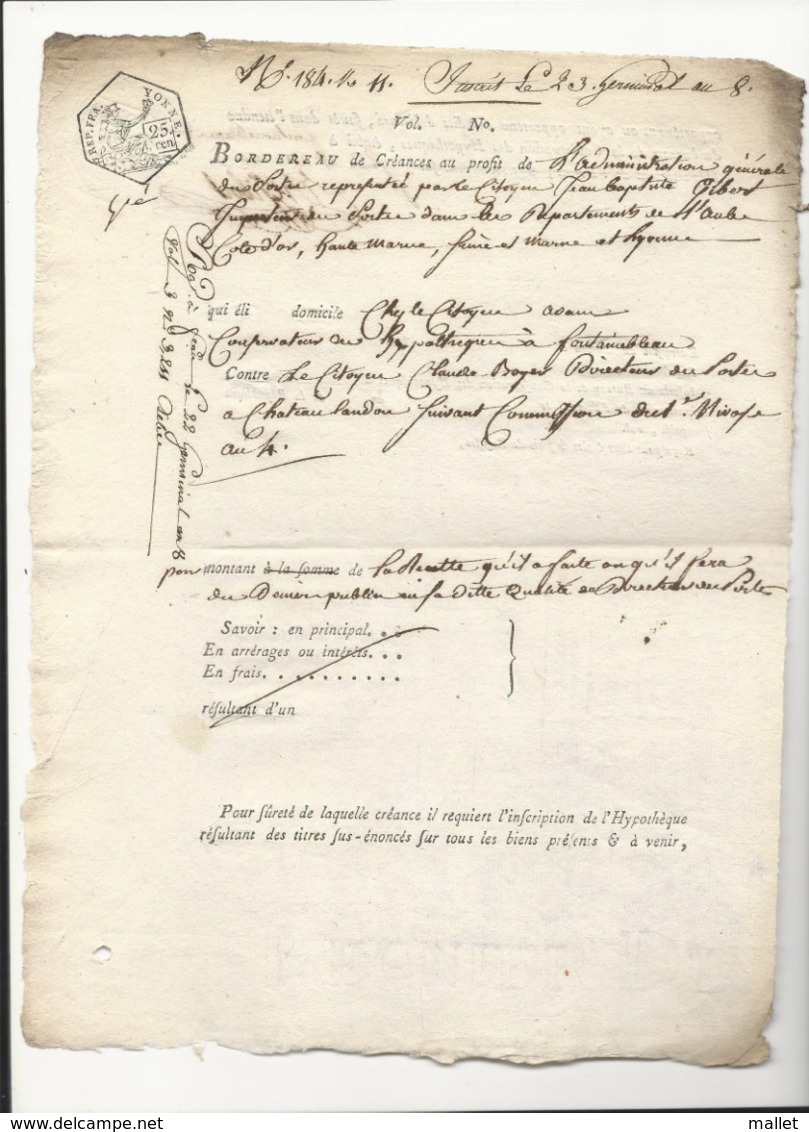 No. 184. Vo 11. Inscrit Le 23 germinal an 8.
REP. FRA.
YONNE.
25.
cen.
Vol. No.
BORDEREAU de Créances au profit de L'administration générale
des Postes représentée par le Citoyen Jean baptiste Gibert
Inspecteur des Postes dans les Départements de L'aube
Cote d'or, haute Marne, Seine et Marne et hyonne
qui éli domicile Chez le Citoyen adam
Conservateur des hypothèques à fontainebleau
Contre Le Citoyen Claude Boyer Directeur des Postes
a Chateaulandon Suivant Commission du 1er. Nivose
an 4.
Reg. à le 22 Germinal an 8
Vol 3 No
pour montant à la somme de la Recette qu'il a faite ou qu'il fera
des Deniers publics en sa ditte Qualité de Directeur des Postes
Savoir : en principal. . .
En arrérages ou intérêts. . .
En frais. . . . . . . . . .
résultant d'un
Pour sûreté de laquelle créance il requiert l'inscription de l'Hypothèque
résultant des titres sus-énoncés sur tous les biens présents & à venir,
delcampe.net
mallet